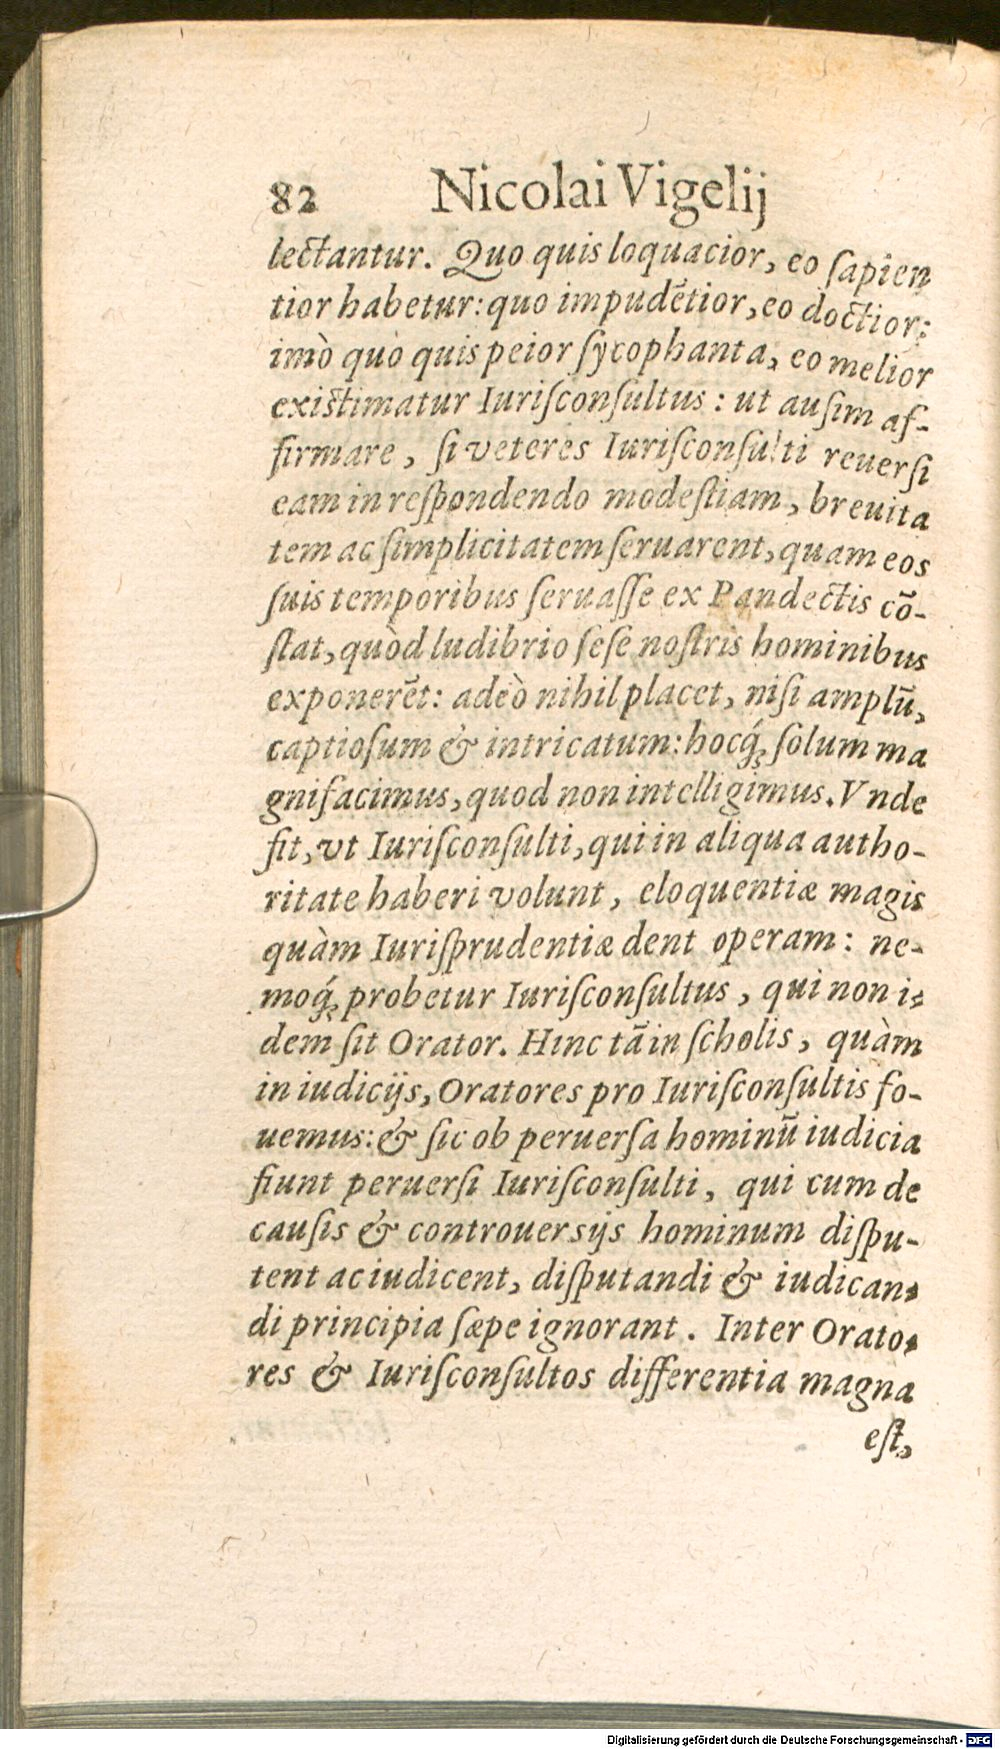 82 Nicolai Vigelij
lectantur. Quo quis loquacior, eo ſapien
tior habetur: quo impudẽtior, eo doctior:
imò quò quis peior ſycophanta, eo melior
existimatur Iuriſconſultus: ut auſim af-
firmare, ſi veteres Iuriſconſulti reuerſi
eam in reſpondendo modeſtiam, breuita
tem ac ſimplicitatem ſeruarent, quam eos
ſuis temporibus ſeruaſſe ex Pandectis cõ-
ſtat, quòd ludibrio ſeſe noſtris hominibus
exponerẽt: adeò nihil placet, niſi amplũ,
captioſum & intricatum: hocq́; ſolum ma
gnifacimus, quod non intelligimus. Vnde
fit, vt Iuriſconſulti, qui in aliqua autho-
ritate haberi volunt, eloquentiæ magis
quàm Iuriſprudentiæ dent operam: ne-
moq́; probetur Iuriſconſultus, qui non i-
dem ſit Orator. Hinc tã in ſcholis, quàm
in iudicijs, Oratores pro Iuriſconſultis fo-
uemus: & ſic ob peruerſa hominũ iudicia
fiunt peruerſi Iuriſconſulti, qui cum de
cauſis & controuersijs hominum diſpu-
tent ac iudicent, diſputandi & iudican-
di principia ſæpe ignorant. Inter Orato-
res & Iuriſconſultos differentia magna
eſt,
Digitalisierung gefördert durch die Deutsche Forschungsgemeinschaft - DFG